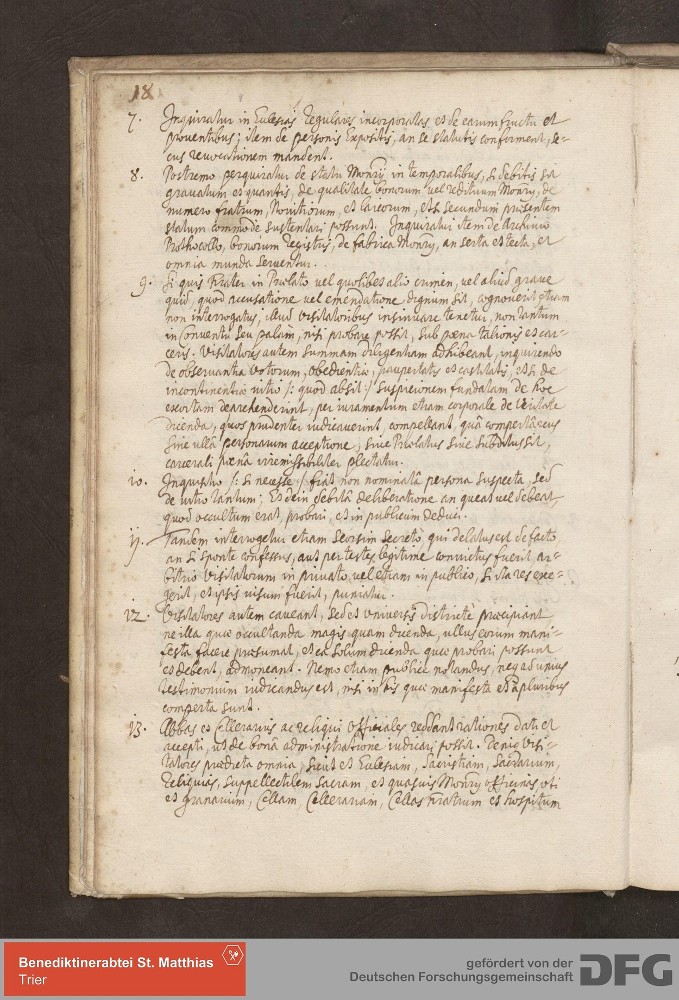 18
7. Inquiratur in Eclesias Regulares incorporatas et de earum fructu et
prouentibus; item de personis Expositis, an se statutis conforment, se-
cus reuocationem mandent.
8. Postremo perquiratur de statu Monrij in temporalibus, si debitis sit
grauatum et quantis, de qualitate bonorum vel redituum Monrij, de
numero fratrum, Nouitiorum, et laicorum, et si secundum præsentem
statum commodè sustentari possunt. Inquiratur item de Archiuio
Prothocollo, bonorum registris, de fabrica Monrij, an serta et tecta, et
omnia munda seruentur.
9. Si quis Frater in Prælato vel quolibet alio crimen, vel aliud graue
quid, quod accusatione vel emendatione dignum sit, cognouerit etiam
non interrogatus, illud visitatoribus insinuare tenetur, non tantum
in Conventu seu palam, nisi probare possit, sub pœna talionis et car-
ceris. Visitatores autem summam diligentiam adhibeant, inquirendo
de obseruantia votorum, obedientiæ, paupertatis et castitatis, et si de
incontinentiæ vitio /: quod absit :/ suspicionem fundatam de hoc
exortam deprehenderint, per iuramentum etiam corporale de veritate
dicenda, quos prudenter iudicauerint, compellant, quâ compertâ reus
sine ullâ personarum acceptione, siue Prælatus siue subditus sit,
carcerali pœnâ irremissibiliter plectatur.
10. Inquisitio /: si necesse :/ fiat non nominatâ persona suspecta, sed
de vitio tantum; Et dein debitâ deliberatione an queat vel debeat,
quod occultum erat, probari, et in publicum deduci.
11. Tandem interrogetur etiam seorsim secretò qui delatus est de facto,
an si sponte confessus, aut per testes legitime conuictus fuerit, ar-
bitrio visitatorum in priuato, vel etiam in publico, si ita res exe-
gerit, et ipsis uisum fuerit, puniatur.
12. Visitatores autem caueant, sed et vniuersis districtè præcipiant
ne illa quæ occultanda magis quam dicenda, ullus eorum mani-
festa facere præsumat, et ea solum dicenda quæ probari possunt
et debent, admoneant. Nemo etiam publicè notandus, neq ad vnius
testimonium iudicandus est, nisi in his quæ manifesta et à pluribus
comperta sunt.
13. Abbas et Cellerarius ac reliqui Officiales reddant rationes dati et
accepti, ut de bonâ administratione iudicari possit. Deniq Visi-
tatores prædicta omnia, sicut et Eclesiam, Sacristiam, Sacrarium,
Reliquias, suppellectilem sacram, et quasuis Monrij officinas, vti
et granarium, Cellam Cellerariam, Cellas Fratrum et hospitum
Benediktinerabtei St. Matthias
Trier
gefördert von der
Deutschen Forschungsgemeinschaft
DFG